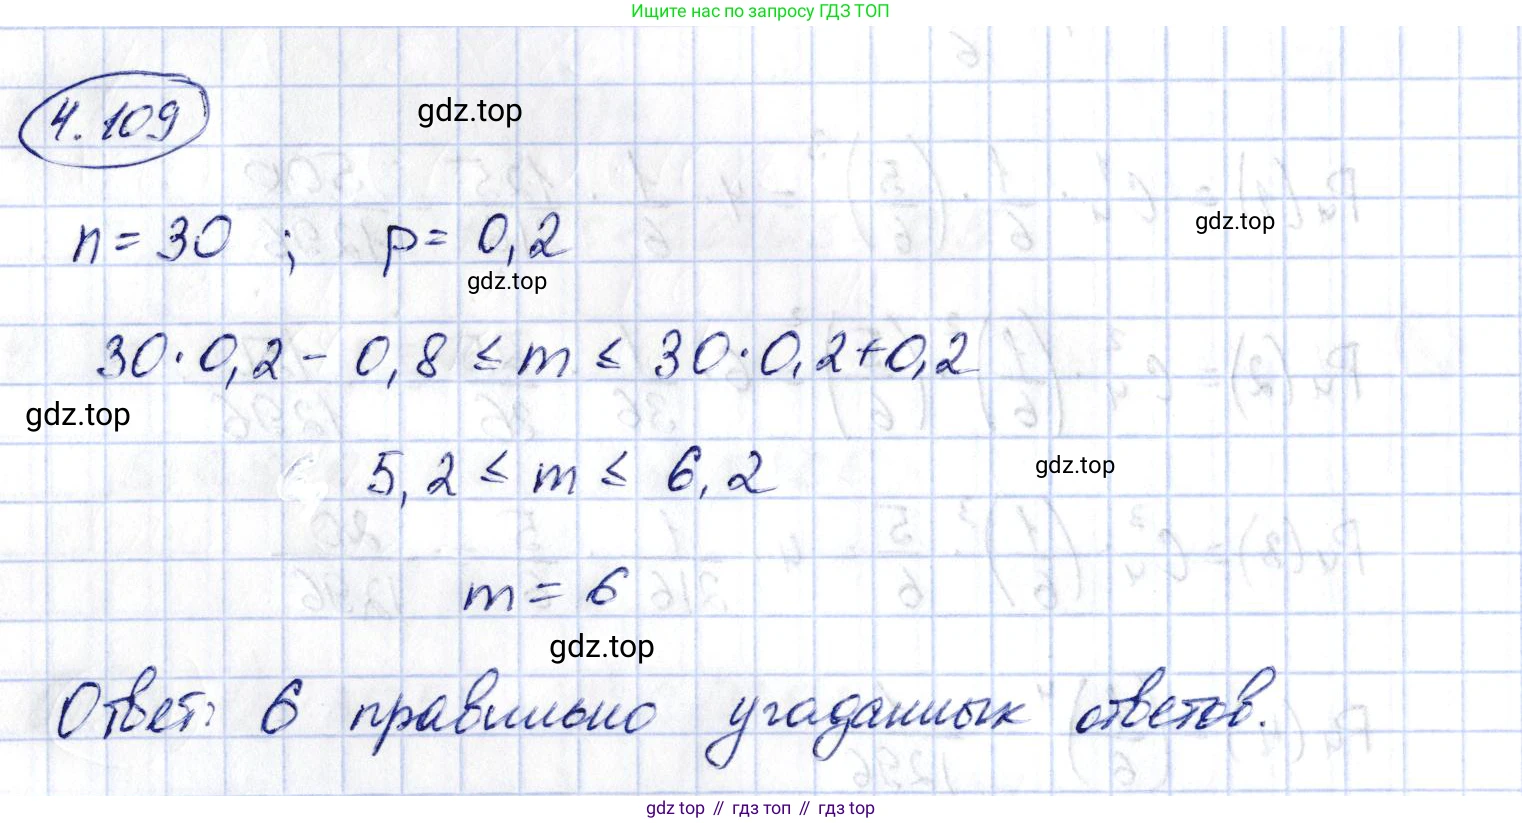 Ищите нас по запросу ГДЗ ТОП
4.109
gdz.top
gdz.top
n = 30 ; p = 0,2
gdz.top
30·0,2 - 0,8 ≤ m ≤ 30·0,2+0,2
gdz.top
5,2 ≤ m ≤ 6,2
gdz.top
m = 6
gdz.top
Ответ: 6 правильно угаданных ответов.
gdz top // гдз топ // гдз top